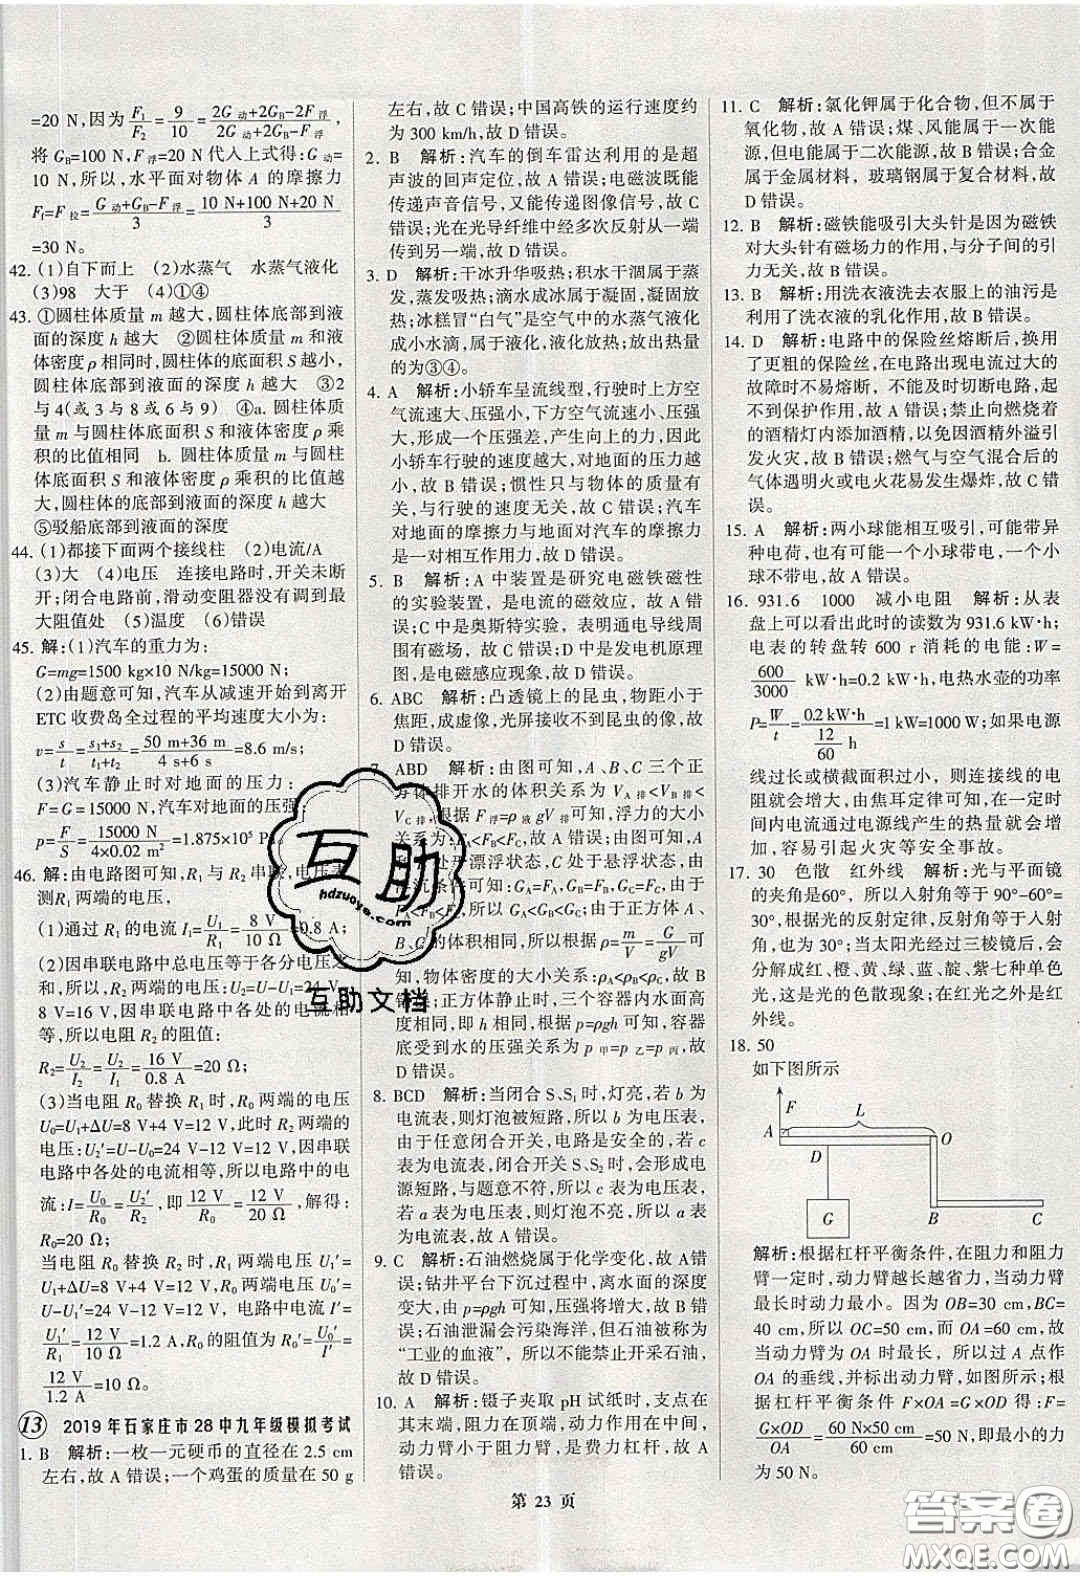 =20 N，因为F₁/F₂=9/10=(2G动+2GB-2F浮)/(2G动+GB-F浮)，
将 GB=100 N，F浮=20 N代入上式得：G动=
10 N，所以，水平面对物体 A 的摩擦力
Ff=F拉=(G动+GB-F浮)/3=(10 N+100 N+20 N)/3
=30 N。
42. (1)自下而上 (2)水蒸气 水蒸气液化
(3)98 大于 (4)①④
43. ①圆柱体质量 m 越大，圆柱体底部到液
面的深度 h 越大 ②圆柱体质量 m 和液
体密度 ρ 相同时，圆柱体的底面积 S 越小，
圆柱体底部到液面的深度 h 越大 ③2
与4(或3与8或6与9) ④a. 圆柱体质
量 m 与圆柱体底面积 S 和液体密度 ρ 乘
积的比值相同 b. 圆柱体质量 m 与圆柱
体底面积 S 和液体密度 ρ 乘积的比值越
大，圆柱体的底部到液面的深度 h 越大
⑤驳船底部到液面的深度
44. (1)都接下面两个接线柱 (2)电流/A
(3)大 (4)电压 连接电路时，开关未断
开；闭合电路前，滑动变阻器没有调到最
大阻值处 (5)温度 (6)错误
45. 解：(1)汽车的重力为：
G=mg=1500 kg×10 N/kg=15000 N；
(2)由题意可知，汽车从减速开始到离开
ETC 收费岛全过程的平均速度大小为：
v=s/t=(s₁+s₂)/(t₁+t₂)=(50 m+36 m)/(4 s+6 s)=8.6 m/s；
(3)汽车静止时对地面的压力：
F=G=15000 N，汽车对地面的压强
p=F/S=15000 N/(4×0.02 m²)=1.875×10⁵ P
46. 解：由电路图可知，R₁ 与 R₂ 串联，电压表
测R₁ 两端的电压，
(1)通过 R₁ 的电流 I₁=U₁/R₁=8 V/10 Ω=0.8 A；
(2)因串联电路中总电压等于各分电压之
和，所以，R₂ 两端的电压：U₂=U-U₁=24 V-
8 V=16 V，因串联电路中各处的电流相
等，所以电阻 R₂ 的阻值：
R₂=U₂/I₂=U₂/I₁=16 V/0.8 A=20 Ω；
(3)当电阻 R₀ 替换 R₁ 时，R₀ 两端的电压
U₀=U₁+ΔU=8 V+4 V=12 V，此时 R₂ 两端的
电压：U₂′=U-U₀=24 V-12 V=12 V，因串联
电路中各处的电流相等，所以电路中的电
流：I=U₀/R₀=U₂′/R₂，即 12 V/R₀=12 V/20 Ω，解得：
R₀=20 Ω；
当电阻 R₀ 替换 R₂ 时，R₁ 两端电压 U₁′=
U₁+ΔU=8 V+4 V=12 V，R₀ 两端电压 U₀′=
U-U₁′=24 V-12 V=12 V，电路中电流 I′=
U₁′/R₁=12 V/10 Ω=1.2 A，R₀ 的阻值为 R₀′=U₀′/I′=
12 V/1.2 A=10 Ω。
13 2019年石家庄市28中九年级模拟考试
1. B 解析：一枚一元硬币的直径在 2.5 cm
左右，故 A 错误；一个鸡蛋的质量在 50 g
左右，故 C 错误；中国高铁的运行速度约
为 300 km/h，故 D 错误。
2. B 解析：汽车的倒车雷达利用的是超
声波的回声定位，故 A 错误；电磁波既能
传递声音信号，又能传递图像信号，故 C
错误；光在光导纤维中经多次反射从一端
传到另一端，故 D 错误。
3. D 解析：干冰升华吸热；积水干涸属于蒸
发，蒸发吸热；滴水成冰属于凝固，凝固放
热；冰糕冒“白气”是空气中的水蒸气液化
成小水滴，属于液化，液化放热；放出热量
的为③④。
4. A 解析：小轿车呈流线型，行驶时上方空
气流速大、压强小，下方空气流速小、压强
大，形成一个压强差，产生向上的力，因此
小轿车行驶的速度越大，对地面的压力越
小，故 B 错误；惯性只与物体的质量有关，
与行驶的速度无关，故 C 错误；汽车
对地面的摩擦力与地面对汽车的摩擦力
是一对相互作用力，故 D 错误。
5. B 解析：A 中装置是研究电磁铁磁性
的实验装置，是电流的磁效应，故 A 错
误；C 是奥斯特实验，表明通电导线周
围有磁场，故 C 错误；D 是发电机原理
图，是电磁感应现象，故 D 错误。
6. ABC 解析：凸透镜上的昆虫，物距小于
焦距，成虚像，光屏接收不到昆虫的像，故
D 错误。
7. ABD 解析：由图可知，A、B、C 三个正
方体排开水的体积关系为 VA排<VB排<
VC排，根据 F浮=ρ液gV排可知，浮力的大小关
FA<FB<FC，故 A 正确；由图可知，
处于漂浮状态，C 处于悬浮状态，
沉条件可知，GA<GB<GC；由于正方体 A、
B、C 的体积相同，所以根据 ρ=m/V=G/gV可
知，物体密度的大小关系：ρA<ρB<ρC，故
B 正确；静止时，三个容器内水面高
度相同，即 h 相同，根据 p=ρgh 可知，容器
底受到水的压强关系为 p甲=p乙=p丙，故
D 正确。
8. BCD 解析：当闭合 S、S₁ 时，灯亮，若 b 为
电流表，则灯泡被短路，所以 b 为电压表，
由于任意闭合开关，电路是安全的，若 c
表为电流表，闭合开关 S、S₂ 时，会形成电
源短路，与题意不符，所以 c 表为电压表，
若 a 表为电压表，则灯泡不亮，所以 a 表
为电流表，故 A 错误。
9. C 解析：石油燃烧属于化学变化，故 A错
误；钻井平台下沉过程中，离水面的深度
变大，由 p=ρgh 可知，压强将变大，故 B
错误；石油泄漏会污染海洋，石油被称为
“工业的血液”，所以不能禁止开采石油，
故 D 错误。
10. A 解析：镊子夹取 pH 试纸时，支点在
其末端，阻力在顶端，动力在中间，所以
动力臂小于阻力臂，是费力杠杆，故 A
正确。
11. C 解析：氯化钾属于化合物，但不属于
氧化物，故 A 错误；煤、风能属于一次能
源，但电能属于二次能源，故 B 错误；合金
属于金属材料，玻璃钢属于复合材料，故
D 错误。
12. B 解析：磁铁能吸引大头针是因为磁铁
对大头针有磁场力的作用，与分子间的引
力无关，故 B 错误。
13. B 解析：用洗衣液洗去衣服上的油污是
利用了洗衣液的乳化作用，故 B 错误。
14. D 解析：电路中的保险丝熔断后，换上
了更粗的保险丝，在电路出现电流过大的
故障时不易熔断，不能及时切断电路，起不
到保护作用，故 A 错误；禁止向燃烧着
的酒精灯内添加酒精，以免因酒精外溢引
发火灾，故 B 错误；燃气与空气混合后的
气体遇明火或电火花易发生爆炸，故 C 错
误。
15. A 解析：两小球能相互吸引，可能带异
种电荷，也可能一个小球带电，一个小
球不带电，故 A 错误。
16. 931.6 1000 减小电阻 解析：从表
盘上可以看出此时的读数为 931.6 kW·h；
电表的转盘转 600 r 消耗的电能：W=
600/3000 kW·h=0.2 kW·h，电热水壶的功率
P=W/t=0.2 kW·h/(12/60 h)=1 kW=1000 W；如果电源
线过长或横截面积过小，则连接线的电
阻就会增大，由焦耳定律可知，在一定时
间内电流通过电源线产生的热量就会增
加，容易引起火灾等安全事故。
17. 30 色散 红外线 解析：光与平面镜
的夹角是60°，所以入射角等于90°-60°=
30°，根据光的反射定律，反射角等于入射
角，也为 30°；当太阳光经过三棱镜后，会
分解成红、橙、黄、绿、蓝、靛、紫七种单色
光，这是光的色散现象；在红光之外是红
外线。
18. 50
如下图所示
F
L
A
O
D
G
B
C
解析：根据杠杆平衡条件，在阻力和阻力
臂一定时，动力臂越长越省力，当动力臂
最长时动力最小。因为 OB=30 cm，BC=
40 cm，所以 OC=50 cm，而 OA=60 cm，故
当动力臂为 OA 时最长，所以过 A 点作
OA 的垂线，并标出动力，如图所示；根据
杠杆平衡条件，F×OA=G×OD，则：F=
G×OD/OA=60 N×50 cm/60 cm=50 N，即最小的动力
为 50 N。
互助
hdzuoye.com
互助文档
第 23 页
答案圈
MXQE.COM